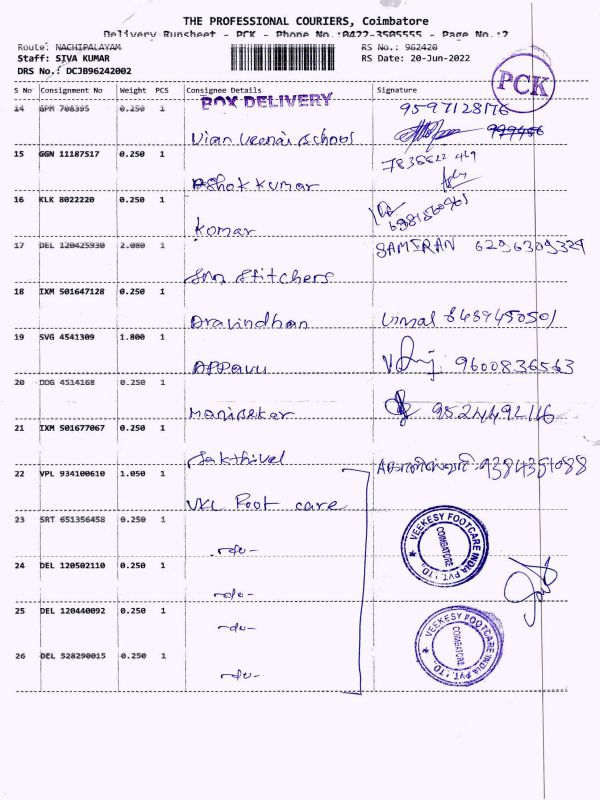 THE PROFESSIONAL COURIERS, Coimbatore
Delivery Runsheet - PCK - Phone No.:0422-3505555 - Page No.:2
Route: NACHIPALAYAM
RS No.: 962420
Staff: SIVA KUMAR
RS Date: 20-Jun-2022
DRS No.: DCJB96242002
PCK
S No Consignment No Weight PCS Consignee Details Signature
BOX DELIVERY
14 GPM 708395 0.250 1 9597128176
School
15 GGN 11187517 0.250 1
Ashok Kumar
16 KLK 8022220 0.250 1
Komar
17 DEL 120425930 2.080 1 SAMIRAN 6296309329
Snn Stitchers
18 IXM 501647128 0.250 1
Aravindhan Vimal 8489450501
19 SVG 4541309 1.800 1
Appavu 9600836563
20 DDG 4514168 0.250 1
Manisekar
21 IXM 501677067 0.250 1
Sakthivel
22 VPL 934100610 1.050 1
VKC Foot care
23 SRT 651356458 0.250 1
-do-
VEEKESY FOOTCARE INDIA PVT. LTD.,
COIMBATORE
24 DEL 120502110 0.250 1
-do-
25 DEL 120440092 0.250 1
-do-
VEEKESY FOOTCARE INDIA PVT. LTD.,
COIMBATORE
26 DEL 528290015 0.250 1
-do-